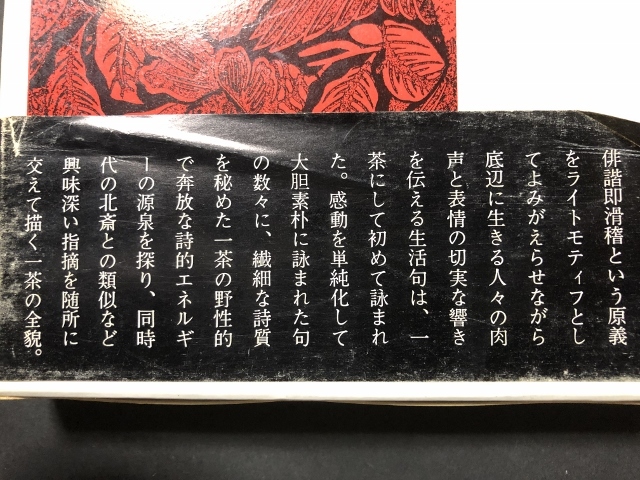 俳諧即滑稽という原義
をライトモティフとし
てよみがえらせながら
底辺に生きる人々の肉
声と表情の切実な響き
を伝える生活句は、一
茶にして初めて詠まれ
た。感動を単純化して
大胆素朴に詠まれた句
の数々に、繊細な詩質
を秘めた一茶の野性的
で奔放な詩的エネルギ
ーの源泉を探り、同時
代の北斎との類似など
興味深い指摘を随所に
交えて描く一茶の全貌。